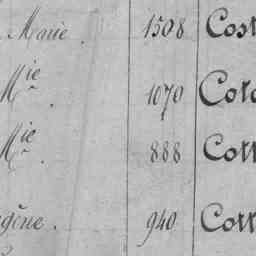 Marie. 1508 Cost
Mie 1070 Coto
Mie. 888 Cott
gène. 940 Cott